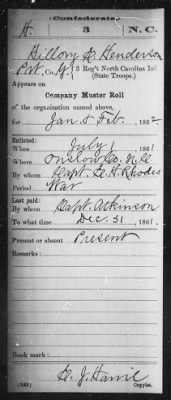 Confederate.
H. 3 N.C.
Hillory Henderson
Pvt, Co. H, 3 Reg't North Carolina Inf.
(State Troops.)
Appears on
Company Muster Roll
of the organization named above,
for Jan & Feb, 1862.
Enlisted:
When July 1, 1861.
Where Onslow Co. N.C.
By whom Capt. H. Rhodes
Period War
Last paid:
By whom Capt. Atkinson
To what time Dec. 31, 1861.
Present or absent Present
Remarks:
Book mark:
(642) J. Copyist.